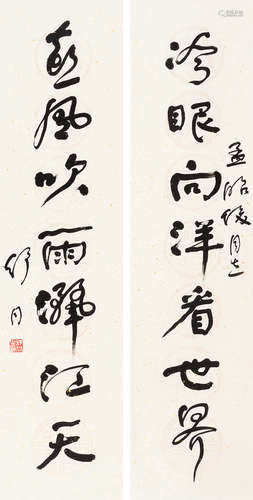 冷眼向洋看世界
孟昭同志
熱風吹雨灑江天
舒同